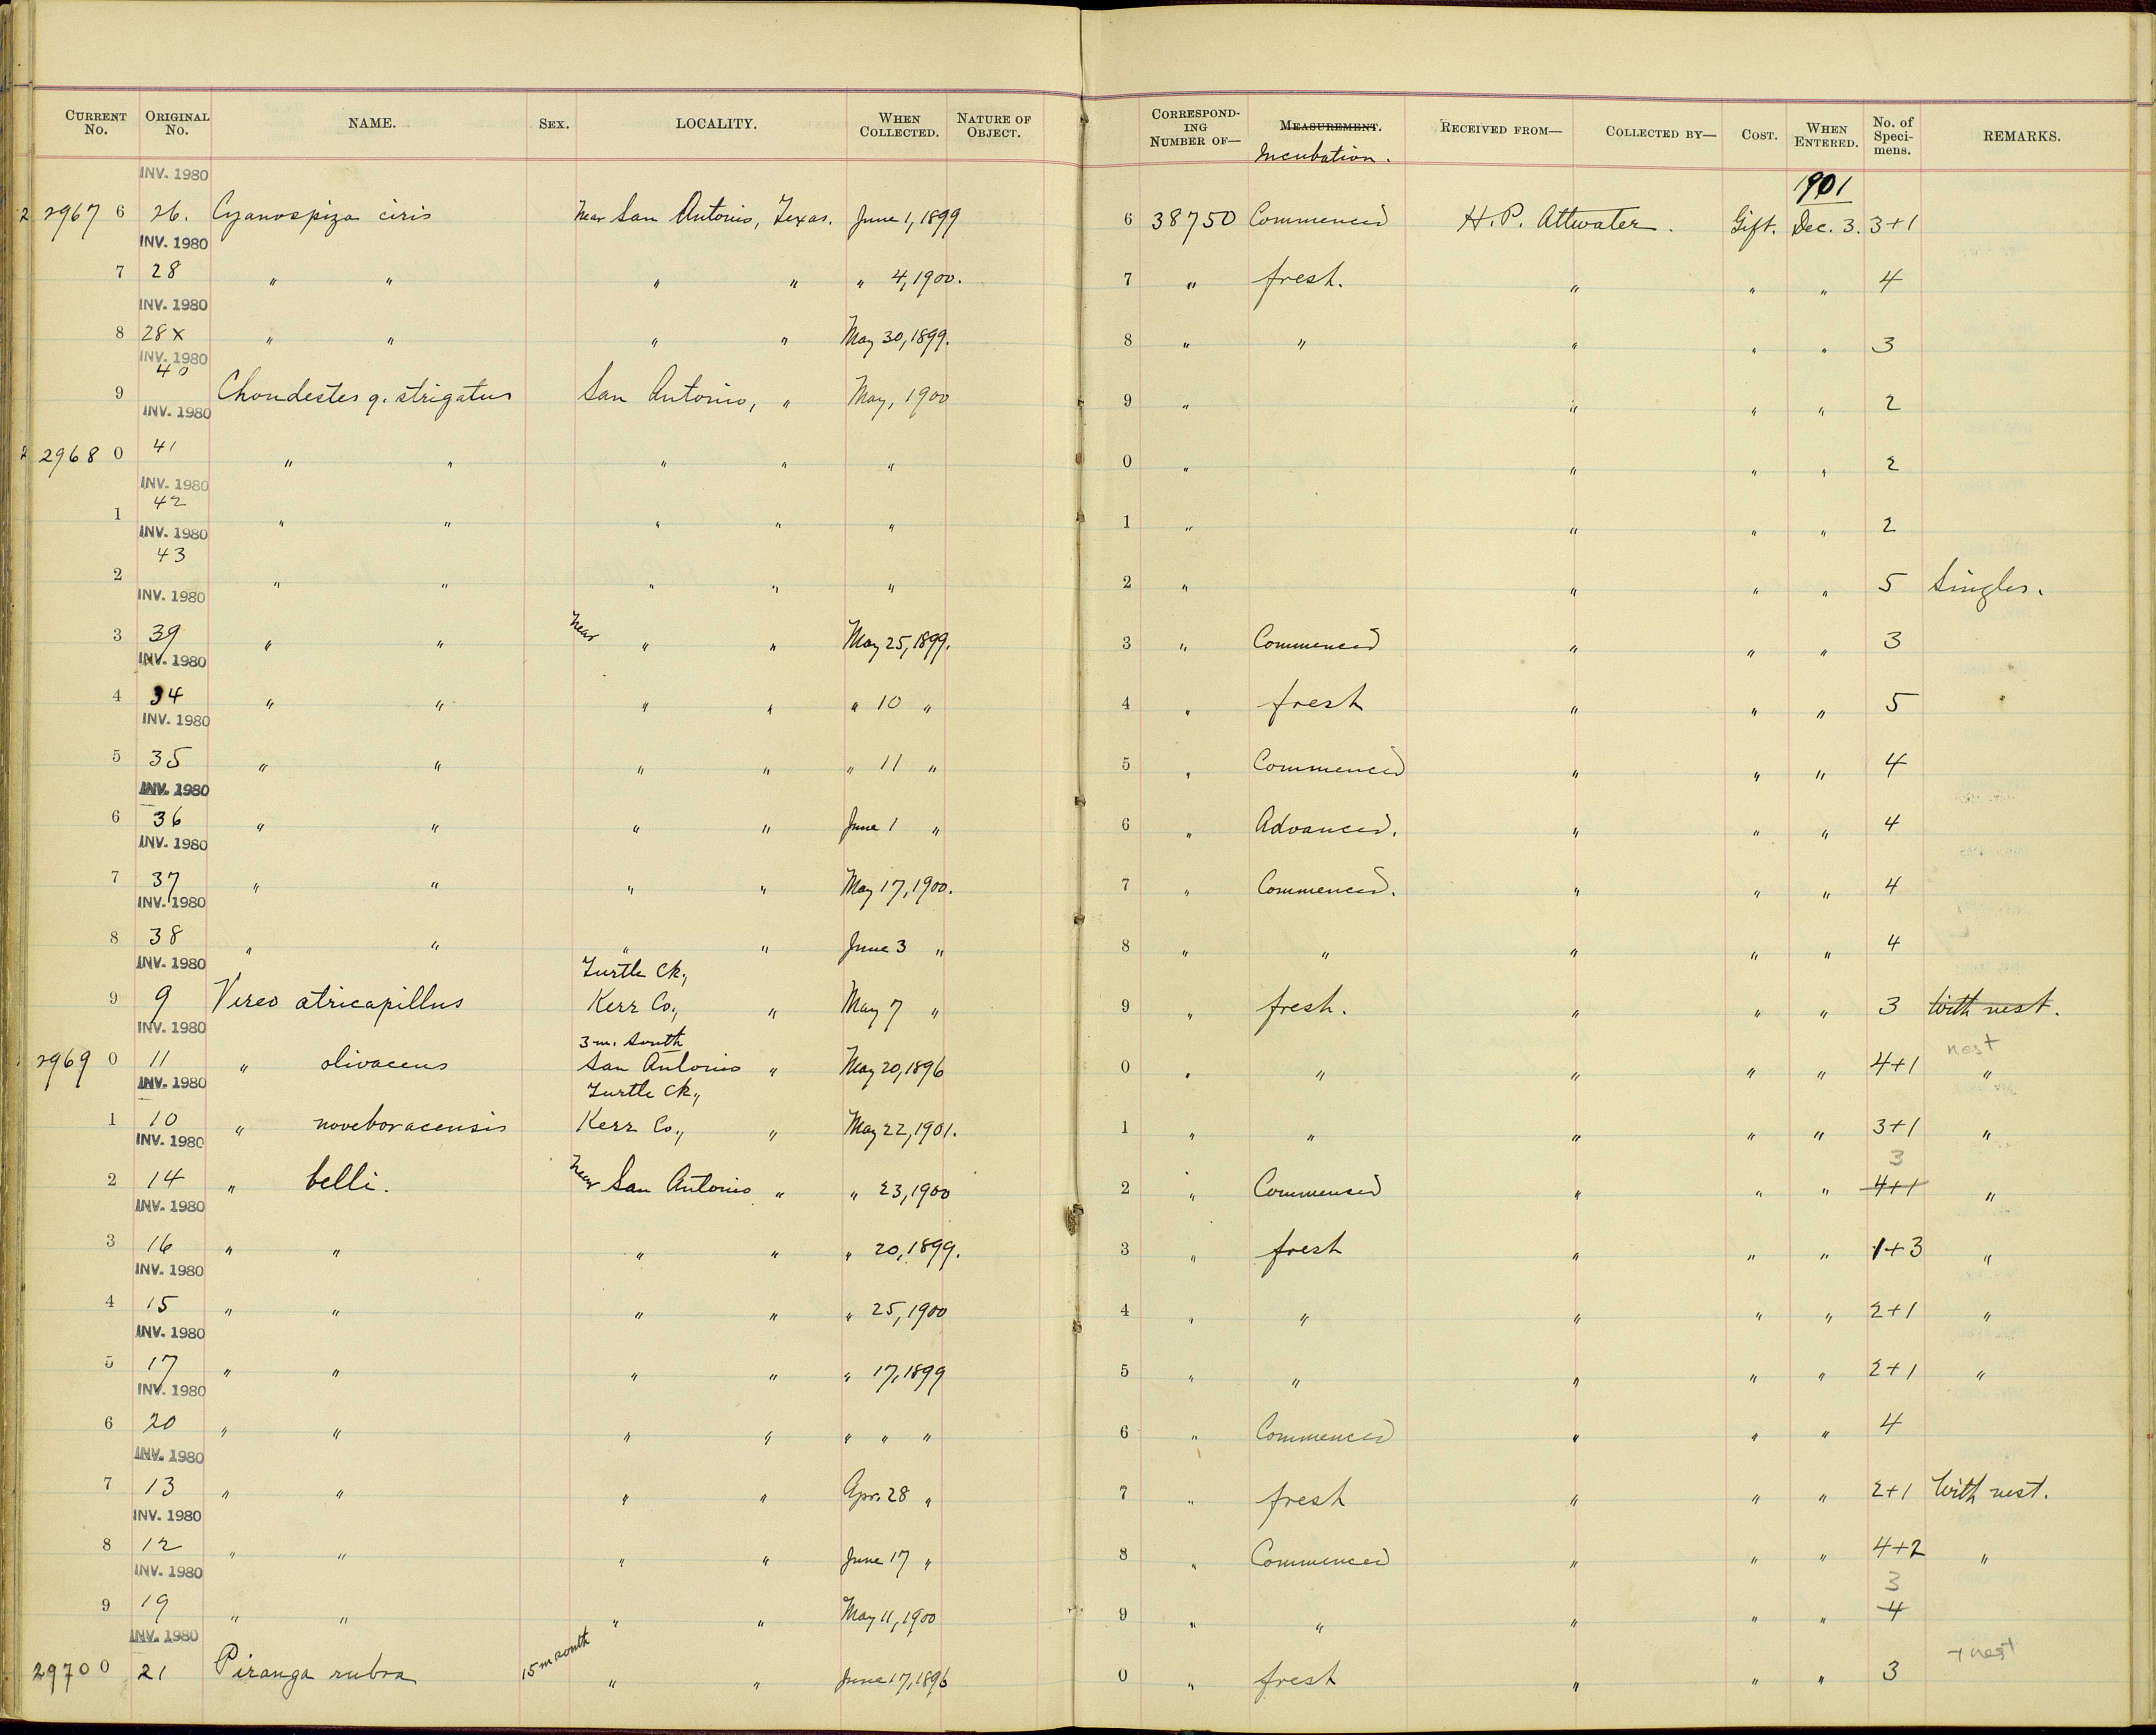 CURRENT No. ORIGINAL No. NAME. SEX. LOCALITY. WHEN COLLECTED. NATURE OF OBJECT. CORRESPONDING NUMBER OF— MEASUREMENT. RECEIVED FROM— COLLECTED BY— COST. WHEN ENTERED. No. of Specimens. REMARKS.
Incubation.
INV. 1980 1901
2 2967 6 26. Cyanospiza ciris Near San Antonio, Texas. June 1, 1899 6 38750 Commenced H. P. Attwater. Gift. Dec. 3. 3+1
INV. 1980
7 28 " " " " " 4, 1900. 7 " fresh. " " " 4
INV. 1980
8 28x " " " " May 30, 1899. 8 " " " " " 3
INV. 1980
9 40 Chondestes g. strigatus San Antonio, " May, 1900 9 " " " " 2
INV. 1980
2 2968 0 41 " " " " " 0 " " " " 2
INV. 1980
1 42 " " " " " 1 " " " " 2
INV. 1980
2 43 " " " " " 2 " " " " 5 Singles.
INV. 1980
3 39 " " Near " " May 25, 1899. 3 " Commenced " " " 3
INV. 1980
4 34 " " " " " 10 " 4 " fresh " " " 5
INV. 1980
5 35 " " " " " 11 " 5 " Commenced " " " 4
INV. 1980
6 36 " " " " June 1 " 6 " Advanced. " " " 4
INV. 1980
7 37 " " " " May 17, 1900. 7 " Commenced. " " " 4
INV. 1980
8 38 " " " " June 3 " 8 " " " " " 4
INV. 1980 Turtle Ck.,
9 9 Vireo atricapillus Kerr Co., " May 7 " 9 " fresh. " " " 3 With nest.
INV. 1980 3 m. South nest
2969 0 11 " olivaceus San Antonio " May 20, 1896 0 " " " " " 4+1 "
INV. 1980 Turtle Ck.,
1 10 " noveboracensis Kerr Co., " May 22, 1901. 1 " " " " " 3+1 "
INV. 1980 3
2 14 " belli. Near San Antonio " " 23, 1900 2 " Commenced " " " 4+1 "
INV. 1980
3 16 " " " " " 20, 1899. 3 " fresh " " " 1+3 "
INV. 1980
4 15 " " " " " 25, 1900 4 " " " " " 2+1 "
INV. 1980
5 17 " " " " " 17, 1899 5 " " " " " 2+1 "
INV. 1980
6 20 " " " " " " " 6 " Commenced " " " 4
INV. 1980
7 13 " " " " Apr. 28 " 7 " fresh " " " 2+1 With nest.
INV. 1980
8 12 " " " " June 17 " 8 " Commenced " " " 4+2 "
INV. 1980 3
9 19 " " " " May 11, 1900 9 " " " " " 4
INV. 1980 + nest
2970 0 21 Piranga rubra 15 m south " " June 17, 1896 0 " fresh " " " 3